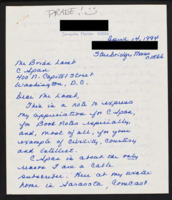 PRAISE!
June 14, 1994
Sturbridge, Mass
Mr Brian Lamb
C Span
400 N. Capitol Street
Washington, D.C.
Dear Mr. Lamb,
This is a note to express
my appreciation for C Span,
for Book Notes especially,
and, most of all, for your
example of civility, courtesy
and intellect.
C Span is about the only
reason I am a cable
subscriber. Here at my
home in Sarasota, Comcast